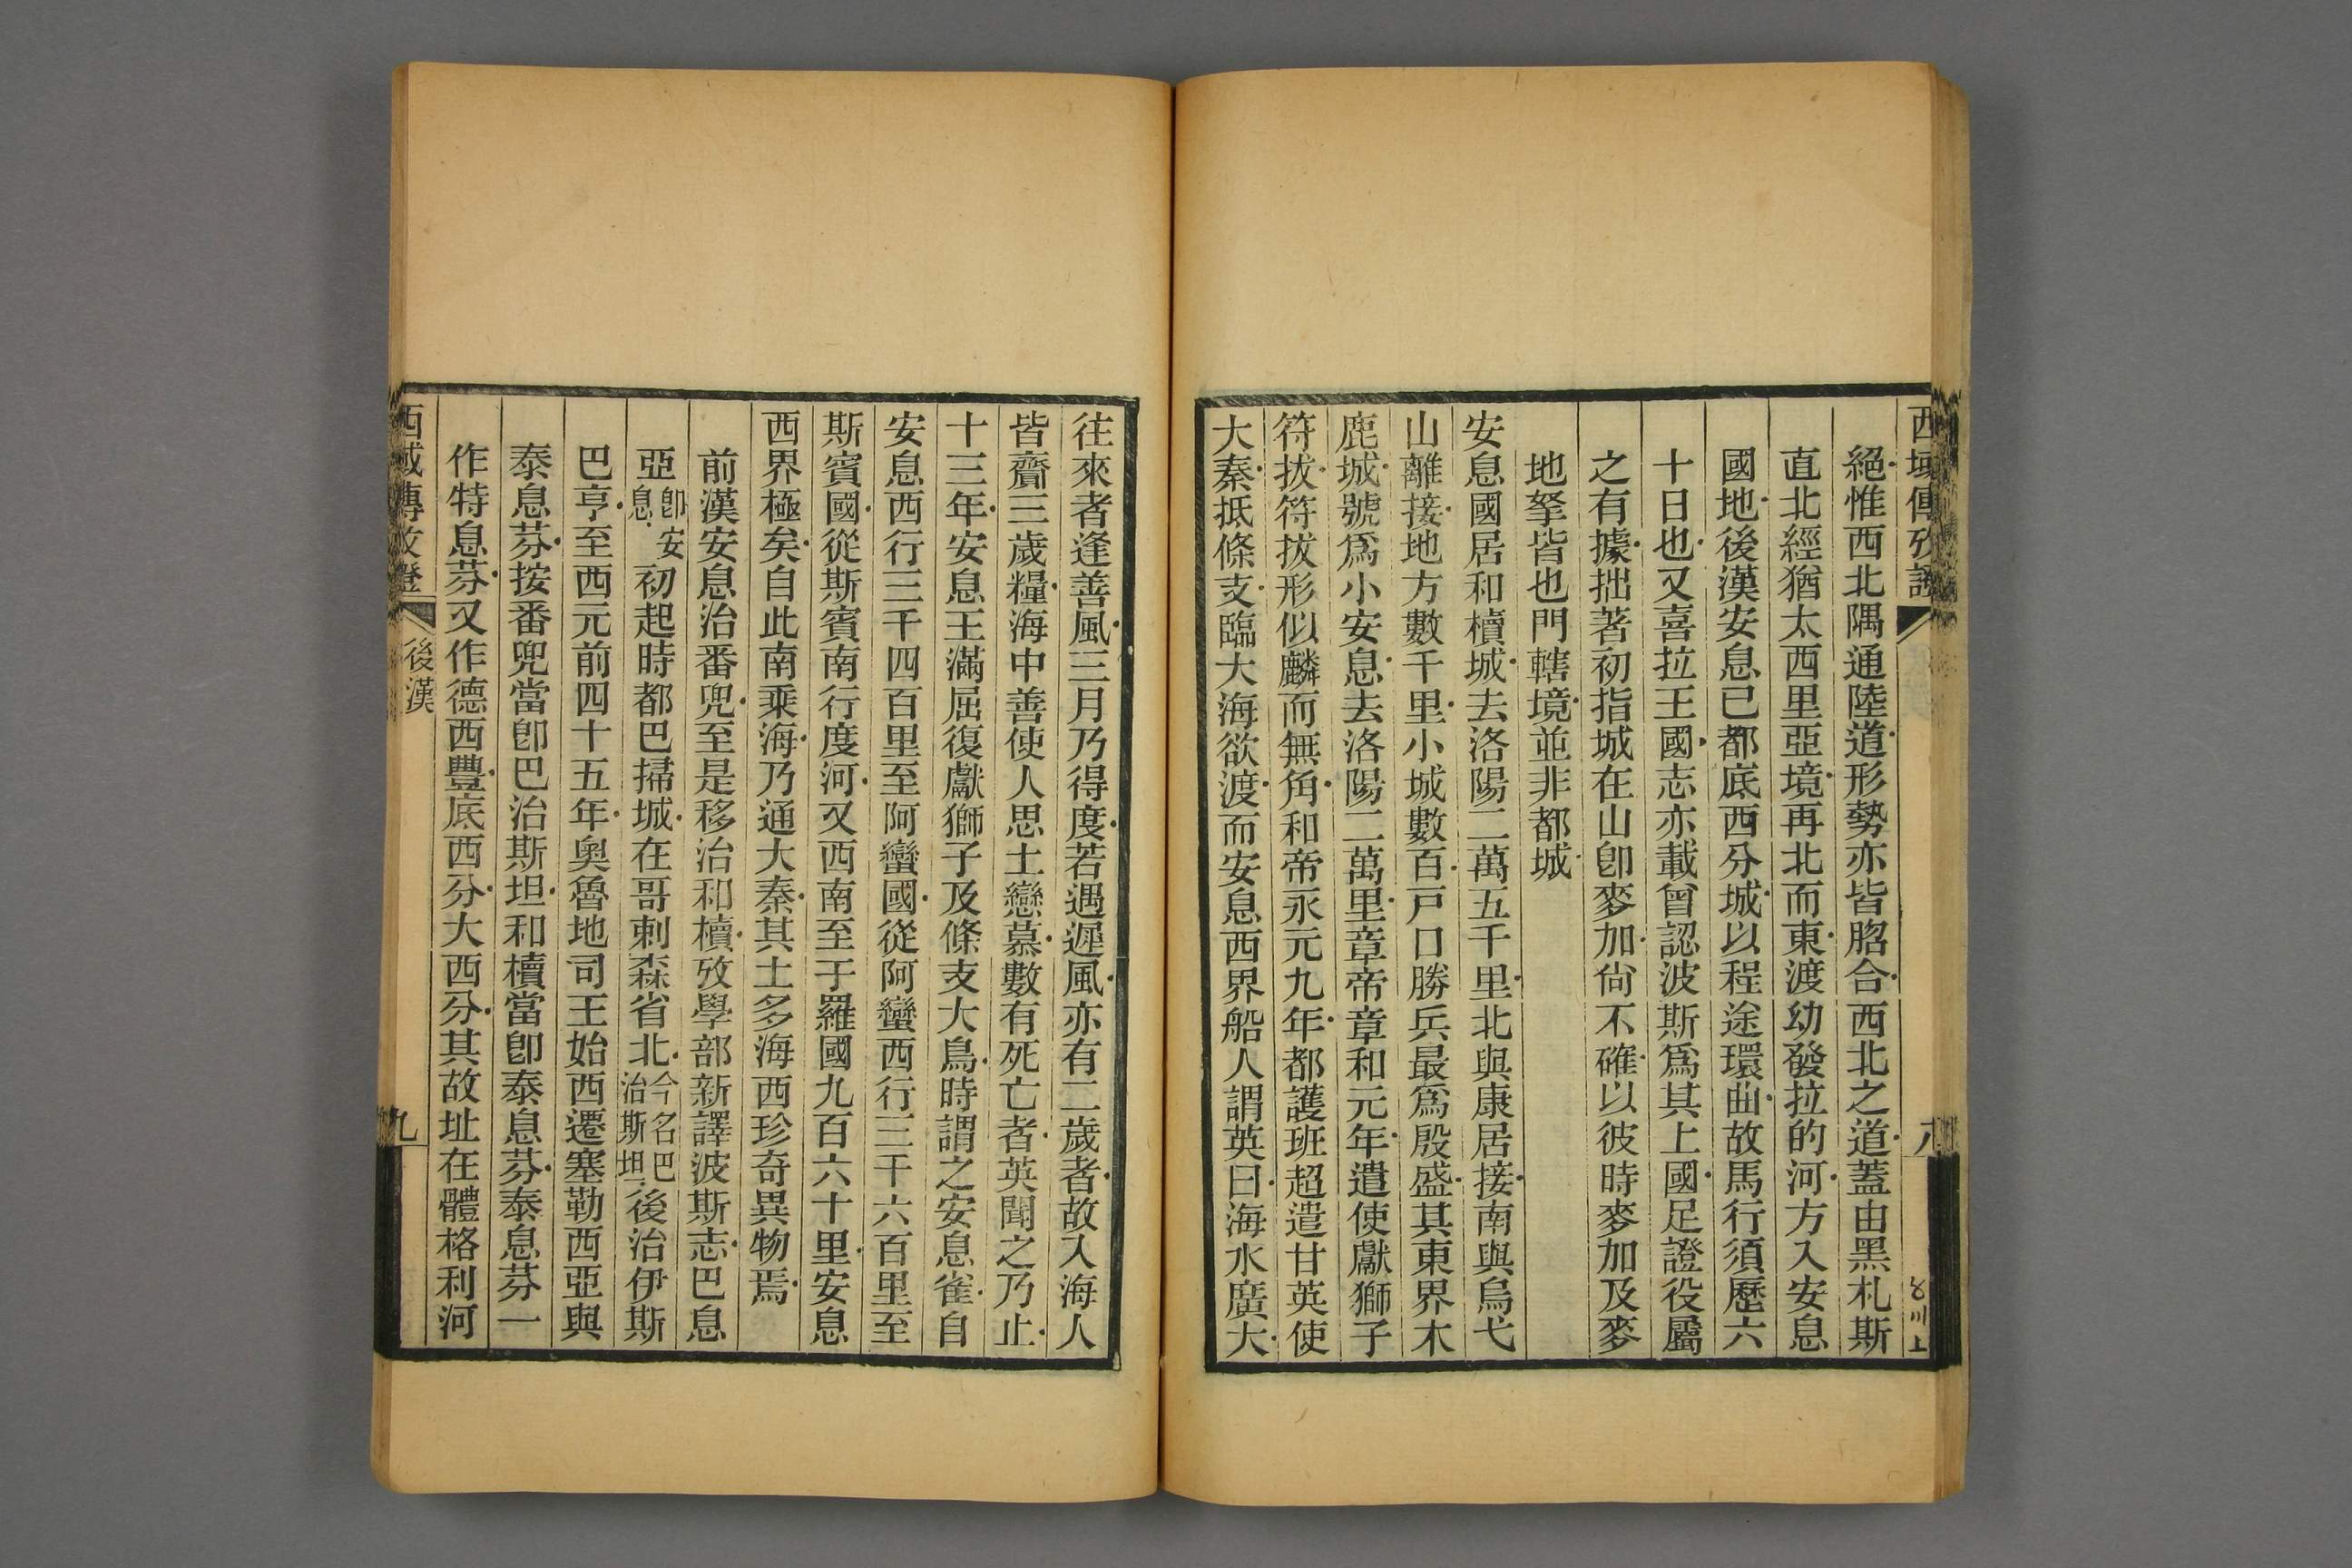 西域傳攷證
八
絕惟西北隅通陸道形勢亦皆脗合西北之道蓋由黑札斯
直北經猶太西里亞境再北而東渡幼發拉的河方入安息
國地後漢安息已都底西分城以程途環曲故馬行須歷六
十日也又喜拉王國志亦載曾認波斯爲其上國足證役屬
之有據拙著初指城在山卽麥加尙不確以彼時麥加及麥
地拏皆也門轄境並非都城
安息國居和櫝城去洛陽二萬五千里北與康居接南與烏弋
山離接地方數千里小城數百戸口勝兵最爲殷盛其東界木
鹿城號爲小安息去洛陽二萬里章帝章和元年遣使獻獅子
符拔符拔形似麟而無角和帝永元九年都護班超遣甘英使
大秦抵條支臨大海欲渡而安息西界船人謂英曰海水廣大
往來者逢善風三月乃得度若遇遲風亦有二歲者故入海人
皆齎三歲糧海中善使人思土戀慕數有死亡者英聞之乃止
十三年安息王滿屈復獻獅子及條支大鳥時謂之安息雀自
安息西行三千四百里至阿蠻國從阿蠻西行三千六百里至
斯賓國從斯賓南行度河又西南至于羅國九百六十里安息
西界極矣自此南乘海乃通大秦其土多海西珍奇異物焉
前漢安息治番兜至是移治和櫝攷學部新譯波斯志巴息
亞卽安息初起時都巴掃城在哥剌森省北今名巴治斯坦後治伊斯
巴亨至西元前四十五年奧魯地司王始西遷塞勒西亞與
泰息芬按番兜當卽巴治斯坦和櫝當卽泰息芬泰息芬一
作特息芬又作德西豐底西分大西分其故址在體格利河
西域傳攷證
後漢
九